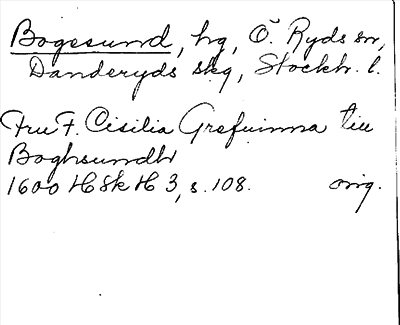 Bogesund, hg, Ö. Ryds sn,
Danderyds skg, Stockh. l.
Fru F. Cisilia Grefuinna till
Boghsundh
1600 HSk H 3, s. 108. orig.